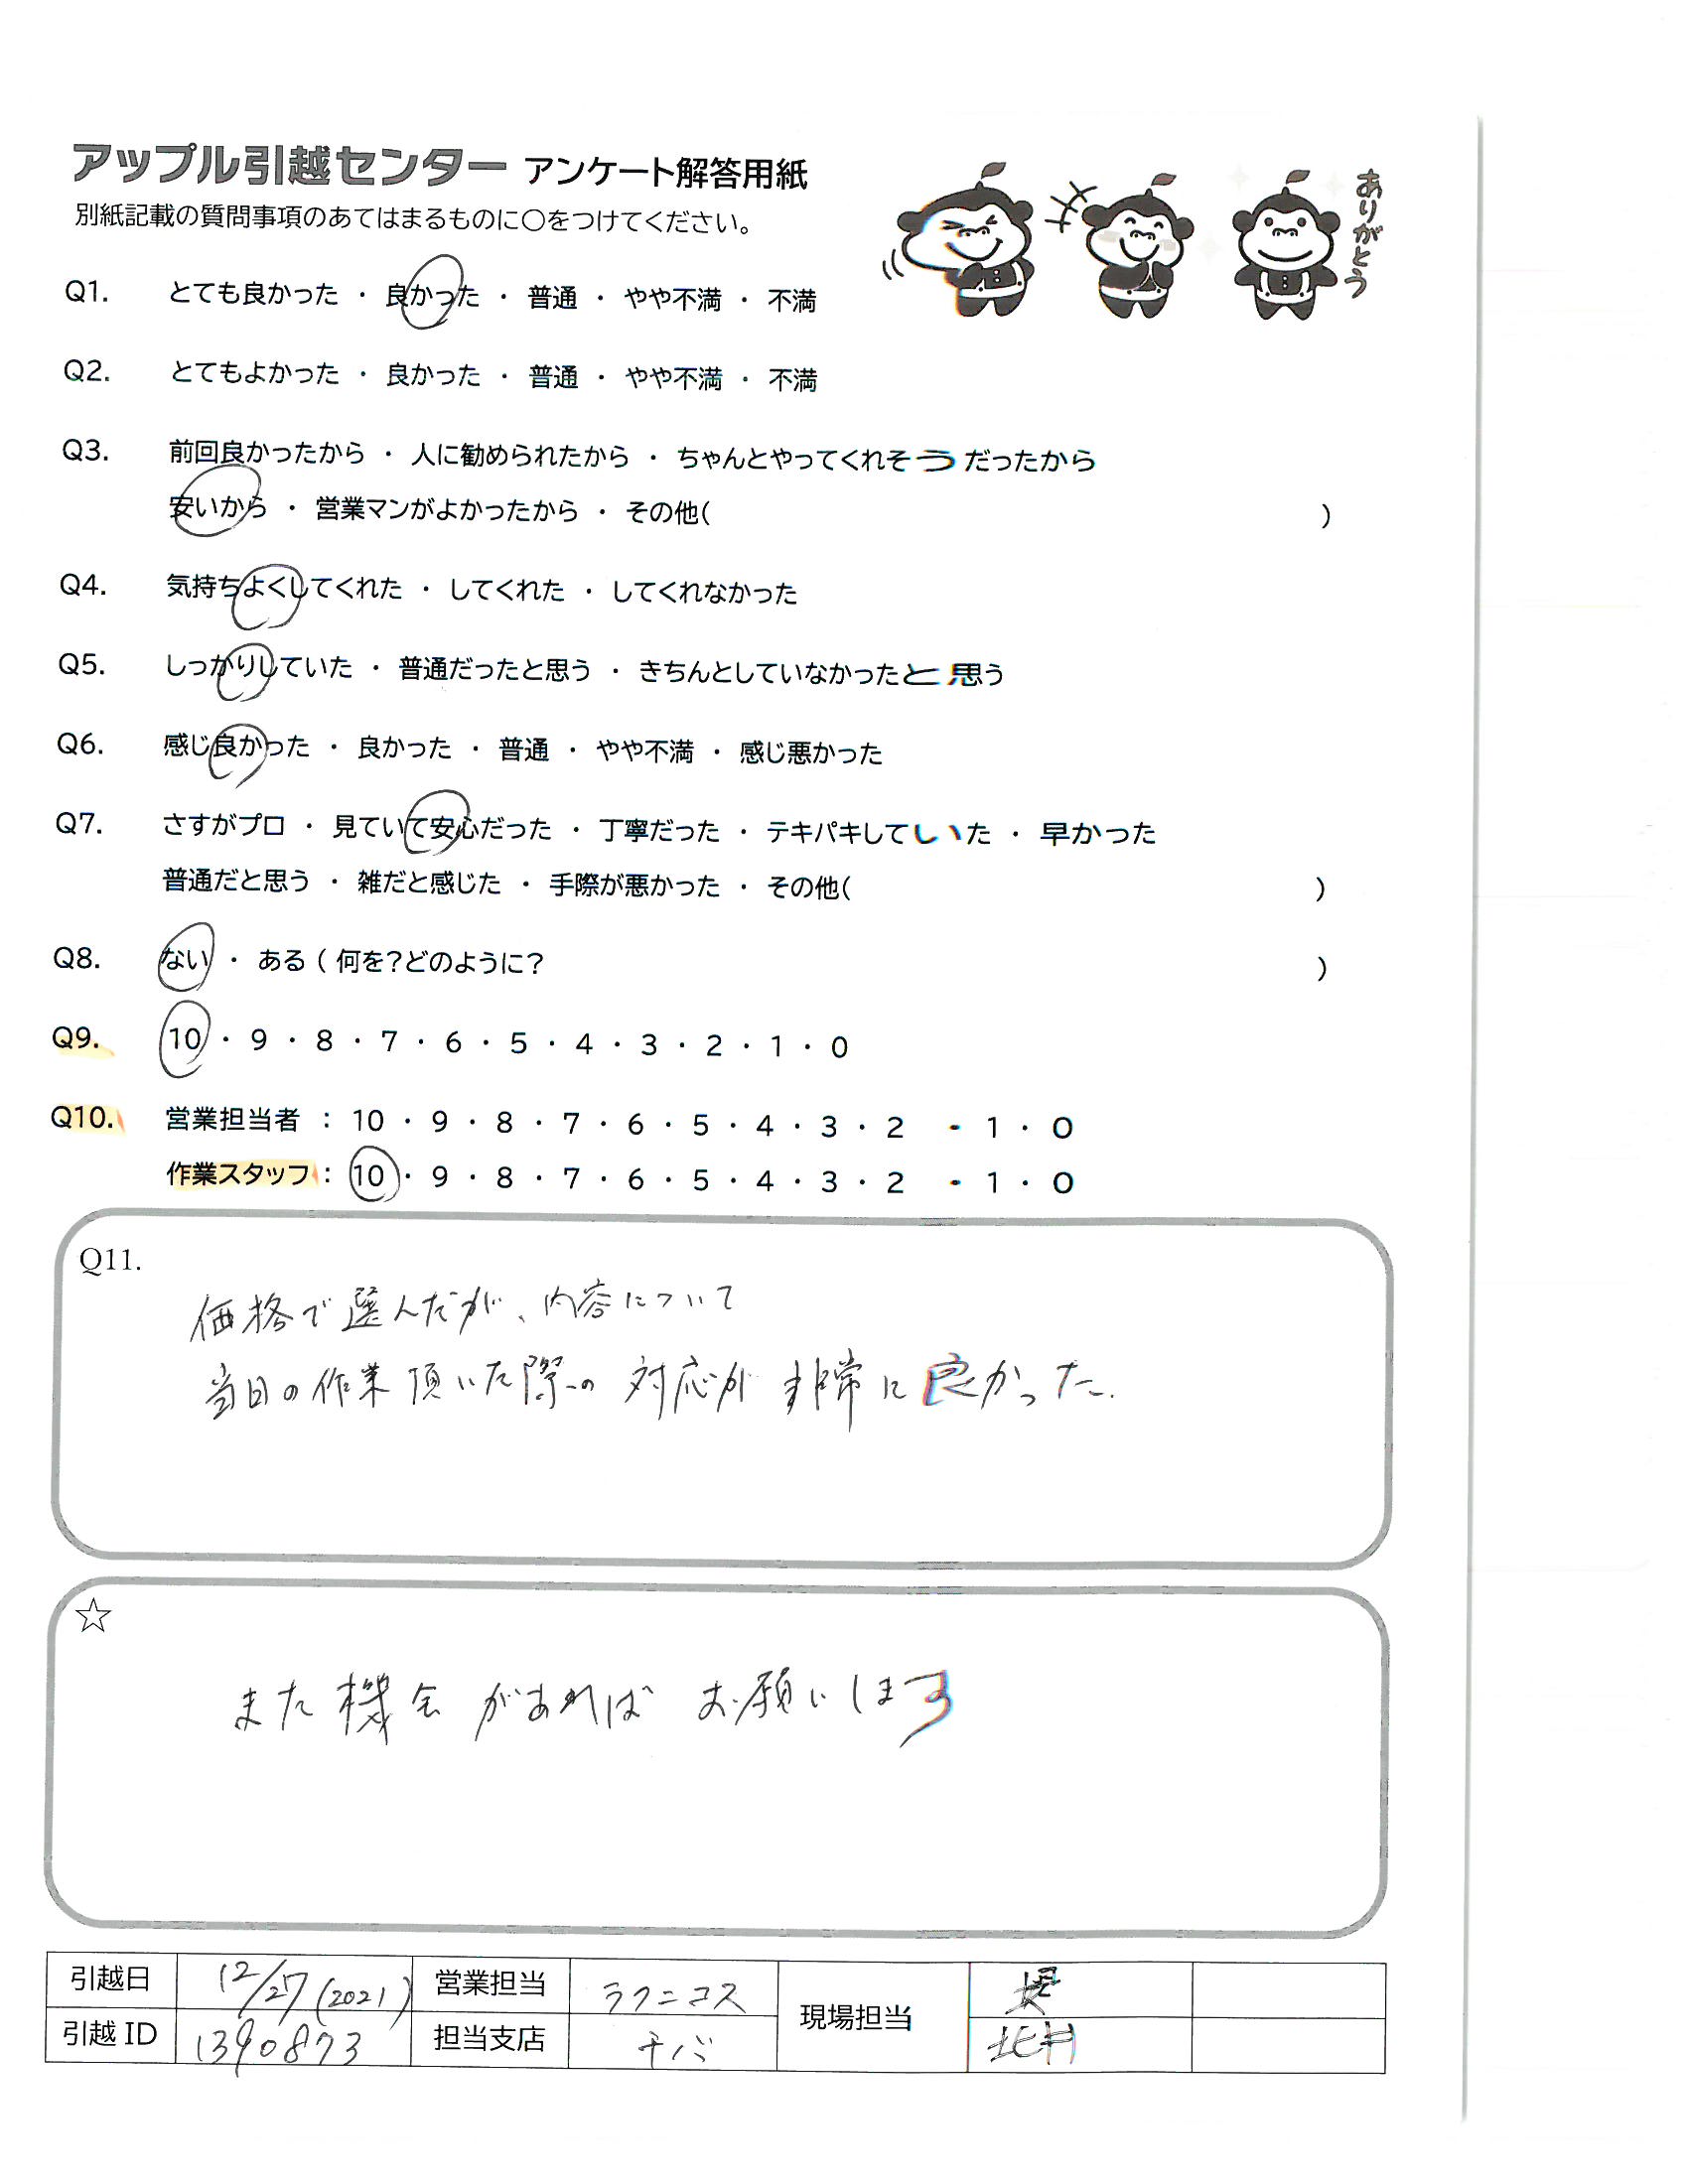 アップル引越センター アンケート解答用紙
ありがとう
別紙記載の質問事項のあてはまるものに〇をつけてください。
Q1. とても良かった ・ 良かった ・ 普通 ・ やや不満 ・ 不満
Q2. とてもよかった ・ 良かった ・ 普通 ・ やや不満 ・ 不満
Q3. 前回良かったから ・ 人に勧められたから ・ ちゃんとやってくれそうだったから
安いから ・ 営業マンがよかったから ・ その他( )
Q4. 気持ちよくしてくれた ・ してくれた ・ してくれなかった
Q5. しっかりしていた ・ 普通だったと思う ・ きちんとしていなかったと思う
Q6. 感じ良かった ・ 良かった ・ 普通 ・ やや不満 ・ 感じ悪かった
Q7. さすがプロ ・ 見ていて安心だった ・ 丁寧だった ・ テキパキしていた ・ 早かった
普通だと思う ・ 雑だと感じた ・ 手際が悪かった ・ その他( )
Q8. ない ・ ある ( 何を?どのように? )
Q9. 10 ・ 9 ・ 8 ・ 7 ・ 6 ・ 5 ・ 4 ・ 3 ・ 2 ・ 1 ・ 0
Q10. 営業担当者 : 10 ・ 9 ・ 8 ・ 7 ・ 6 ・ 5 ・ 4 ・ 3 ・ 2 ・ 1 ・ 0
作業スタッフ : 10 ・ 9 ・ 8 ・ 7 ・ 6 ・ 5 ・ 4 ・ 3 ・ 2 ・ 1 ・ 0
Q11.
価格で選んだが、内容について
当日の作業頂いた際の対応が非常に良かった.
☆
また機会があればお願いします
引越日 12/27(2021) 営業担当 ラクニコス 現場担当
引越 ID 1390873 担当支店 千バ 北井